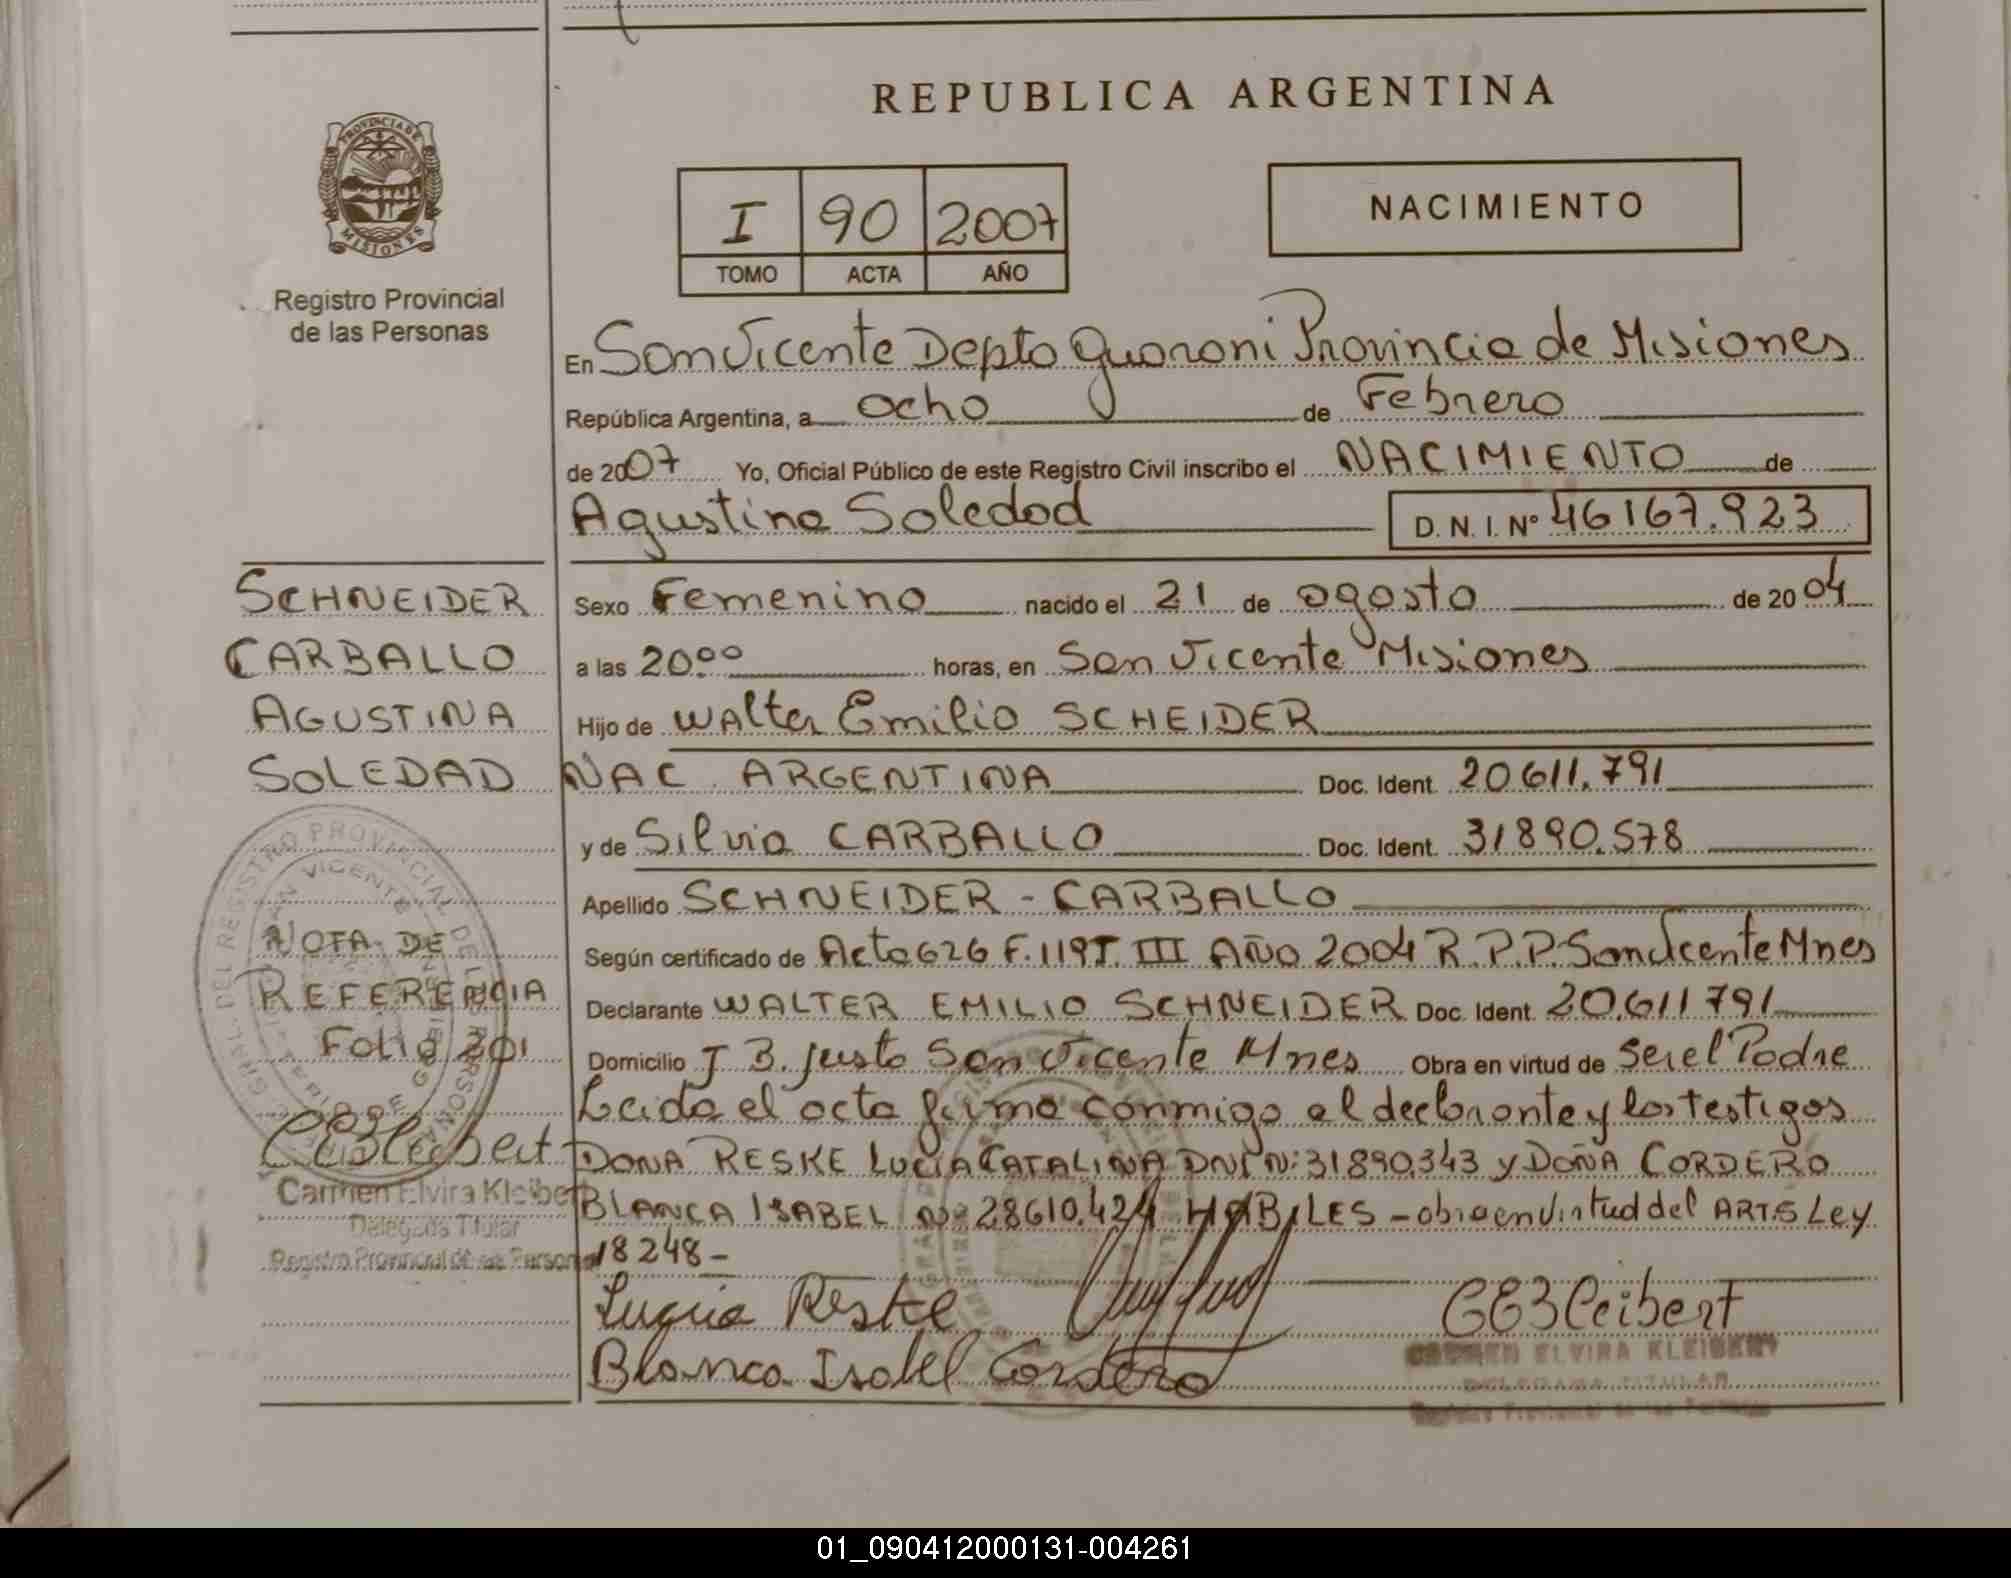 REPUBLICA ARGENTINA
PROVINCIA DE
MISIONES
Registro Provincial
de las Personas
I 90 2007
TOMO ACTA AÑO
NACIMIENTO
En San Vicente Depto Guaraní Provincia de Misiones
República Argentina, a ocho de Febrero
de 2007 Yo, Oficial Público de este Registro Civil inscribo el NACIMIENTO de
Agustina Soledad D. N. I. Nº 46167.923
SCHNEIDER
CARBALLO
AGUSTINA
SOLEDAD
Sexo Femenino nacido el 21 de agosto de 2004
a las 20°° horas, en San Vicente Misiones
Hijo de Walter Emilio SCHEIDER
NAC. ARGENTINA Doc. Ident. 20611.791
y de Silvia CARBALLO Doc. Ident. 31890.578
Apellido SCHNEIDER - CARBALLO
Según certificado de Acta 626 F. 119 T. III AÑO 2004 R.P.P. San Vicente Mnes
Declarante WALTER EMILIO SCHNEIDER Doc. Ident. 20.611791
Domicilio J B. Justo San Vicente Mnes Obra en virtud de Ser el Padre
Leida el acta firma conmigo el declarante y los testigos
DONA RESKE LUCIA CATALINA DNI N: 31890.343 y DOÑA CORDERO
BLANCA ISABEL Nº 28610.424 HABILES - obra en virtud del ART 5 Ley
18248 -
NOTA DE
REFERENCIA
Folio 201
CEKleibert
Carmen Elvira Kleibert
Delegada Titular
Registro Provincial de las Personas
Lucia Reske
Blanca Isabel Cordero
CEKleibert
CARMEN ELVIRA KLEIBERT
DELEGADA TITULAR
Registro Provincial de las Personas
01_090412000131-004261